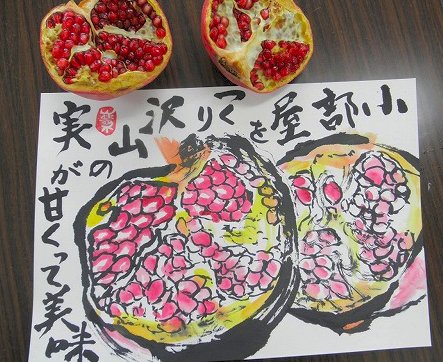 小部屋をつくり沢山の
実が甘くって美味